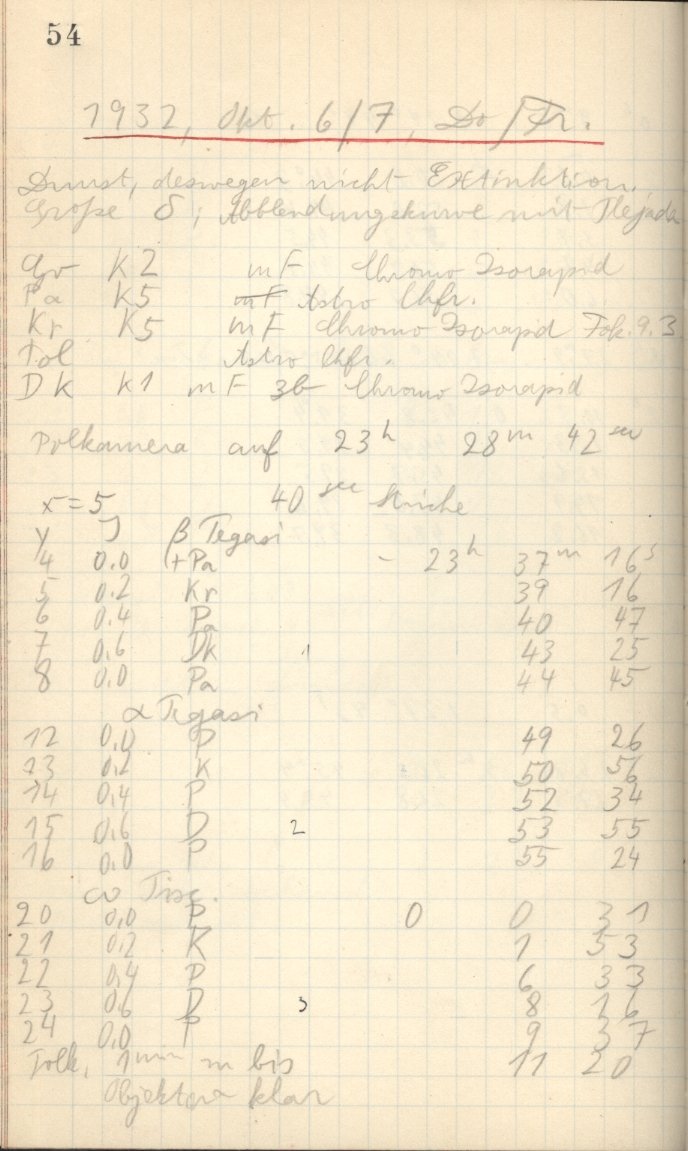 54
1932, Okt. 6/7, Do/Fr.
Dunst, deswegen nicht Extinktion.
Große δ; Abblendungskurve mit Plejada
Gr K2 mF Chromo Isorapid
Pa K5 mF Astro Chfr.
Kr K5 mF Chromo Isorapid Fok. 9.3
Pol Astro Chfr.
Dk K1 mF 3b Chromo Isorapid
Polkamera auf 23h 28m 42sec
x=5 40sec Striche
y J β Pegasi
4 0.0 (+Pa - 23h 37m 16s
5 0.2 Kr 39 16
6 0.4 Pa 40 47
7 0.6 Dk 1 43 25
8 0.0 Pa 44 45
α Pegasi
12 0.0 P 49 26
13 0.2 K 50 56
14 0.4 P 52 34
15 0.6 D 2 53 55
16 0.0 P 55 24
ω Pisc.
20 0.0 P 0 0 31
21 0.2 K 1 53
22 0.4 P 6 33
23 0.6 D 3 8 16
24 0.0 P 9 37
Polk. 1min m bis 11 20
Objektive klar